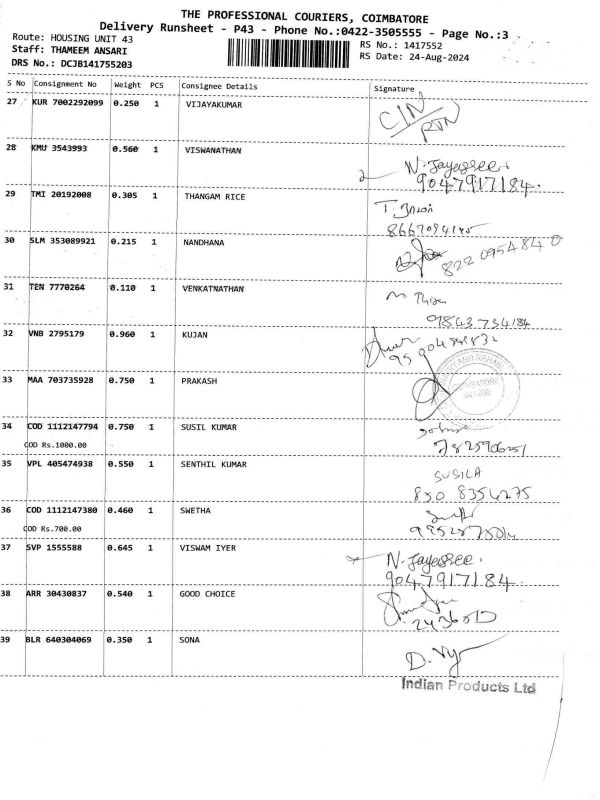 THE PROFESSIONAL COURIERS, COIMBATORE
Delivery Runsheet - P43 - Phone No.:0422-3505555 - Page No.:3
Route: HOUSING UNIT 43
Staff: THAMEEM ANSARI
DRS No.: DCJB141755203
RS No.: 1417552
RS Date: 24-Aug-2024
S No Consignment No Weight PCS Consignee Details Signature
27 KUR 7002292099 0.250 1 VIJAYAKUMAR
28 KMU 3543993 0.560 1 VISWANATHAN N. Jayasree.
9047917184.
29 TMI 20192008 0.305 1 THANGAM RICE
30 SLM 353089921 0.215 1 NANDHANA 822 0954840
31 TEN 7770264 0.110 1 VENKATNATHAN
09843734184
32 VNB 2795179 0.960 1 KUJAN
33 MAA 703735928 0.750 1 PRAKASH
COIMBATORE
34 COD 1112147794 0.750 1 SUSIL KUMAR
COD Rs.1000.00
35 VPL 405474938 0.550 1 SENTHIL KUMAR SUSILA
850 8354275
36 COD 1112147380 0.460 1 SWETHA
COD Rs.700.00
37 SVP 1555588 0.645 1 VISWAM IYER N. Jayasree.
9047917184
38 ARR 30430837 0.540 1 GOOD CHOICE
39 BLR 640304069 0.350 1 SONA
Indian Products Ltd